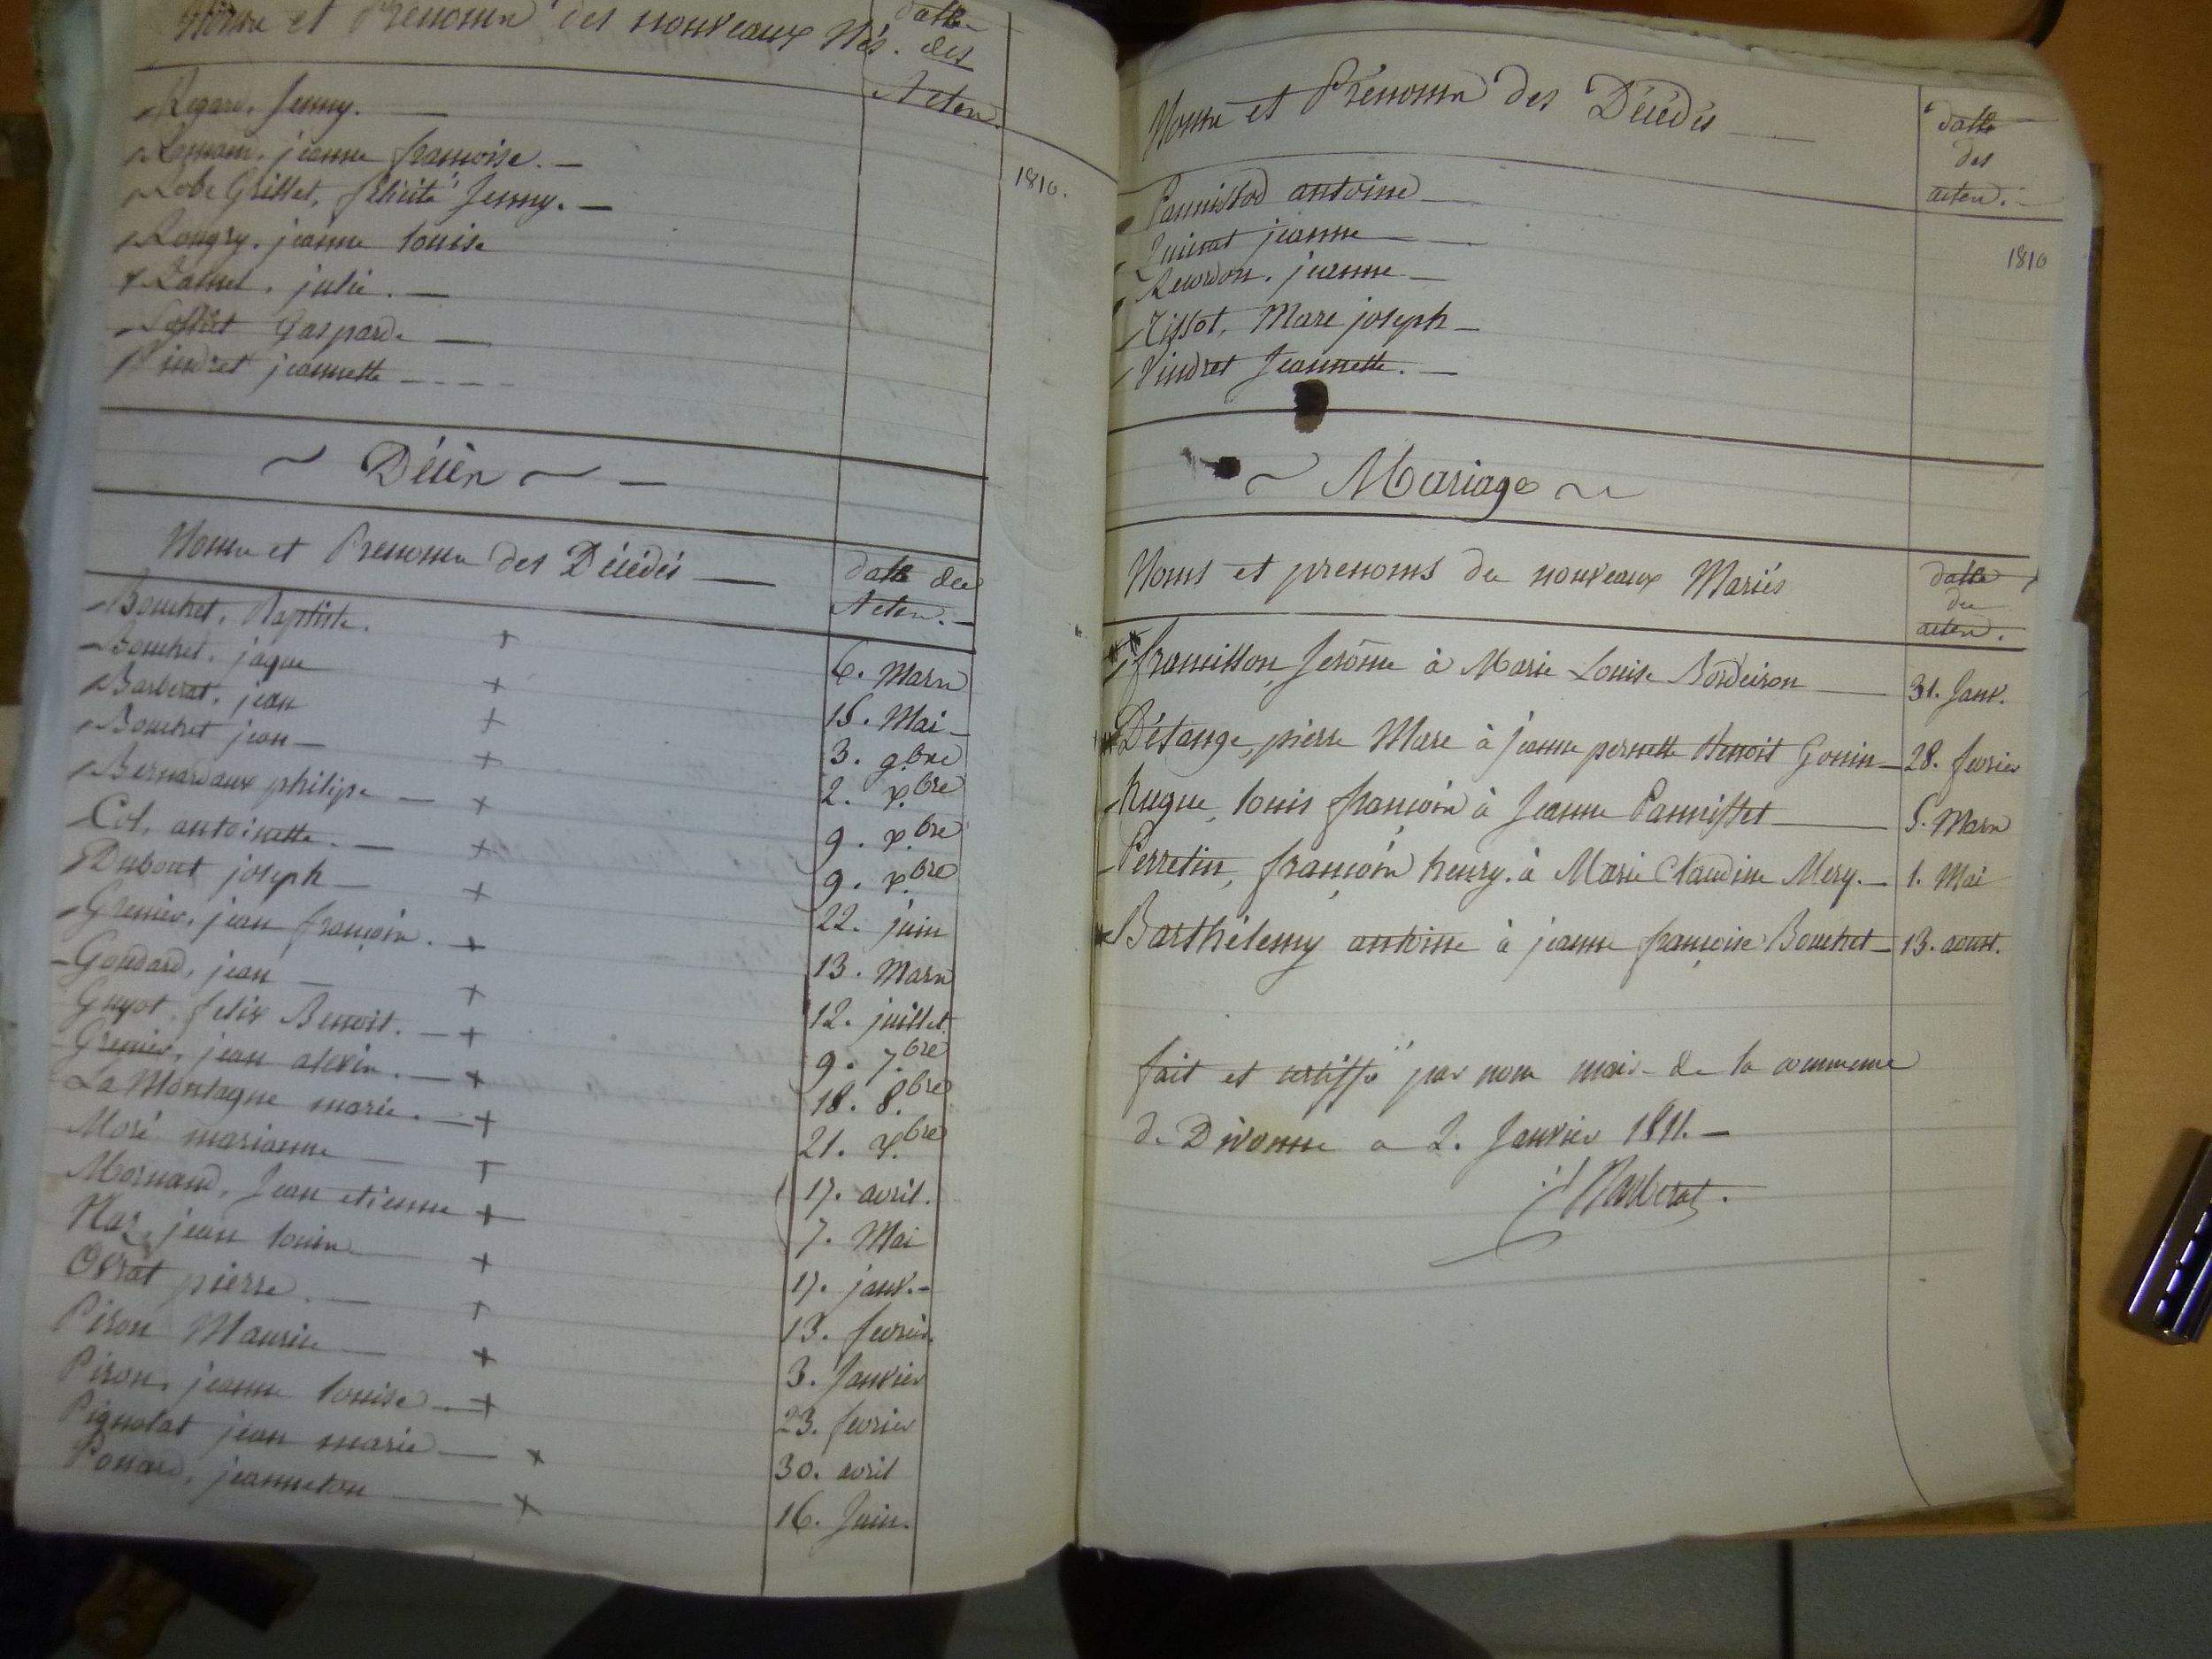 Noms et Prenoms des nouveaux Nés.
datte
des
Actes.
1810.
Regard, Jenny.
jeanne françoise.
Robe Grillet, félicité Jenny.
Rongry. jeanne louise
julie.
Gaspard
Vindret jeannette
Décès
Noms et Prenoms des Décédés
datte des
Actes.
Bouchet, Baptiste. + 6. Mars
Bouchet, jaque + 15. Mai
Barberat, jean + 3. 9.bre
Bouchet jean + 2. x.bre
Bernardaux philipe + 9. x.bre
Col, antoinette. + 9. x.bre
Dubout joseph + 22. juin
Grenier, jean françois. + 13. Mars
Goudard, jean + 12. juillet
Guyot, felix Benoit. + 9. 7.bre
Grenier, jean alexis. + 18. 8.bre
La Montagne marie. + 21. x.bre
Moré marianne + 17. avril.
Mornand, Jean etienne + 7. Mai
Naz, jean louis + 17. janv.
Ovrat pierre. + 13. fevrier.
Piron Maurice + 3. Janvier
Piron, jeanne louise + 23. fevrier
Pignolat jean marie + 30. avril
jeanneton + 16. Juin.
Noms et Prénoms des Décédés
datte
des
actes.
1810
Pannissod antoine
jeanne
Reurdon, jeanne
Tissot, Marc joseph
Vindret Jeannette.
Mariage
Noms et prenoms de nouveaux Mariés
datte
des
actes.
framisson, Jerôme à Marie Louise Bordeiron 31. Janv.
Détange, pierre Marc à jeanne pernette Benoit Gonin 28. fevrier
hugue, louis françois à Jeanne Pannisset 5. Mars
Perretin, françois henry. à Marie Claudine Mery. 1. Mai
Barthélemy antoine à jeanne françoise Bouchet 13. aoust.
fait et certiffé par nous maire de la commune
de Divonne ce 2. Janvier 1811.
Barberat.